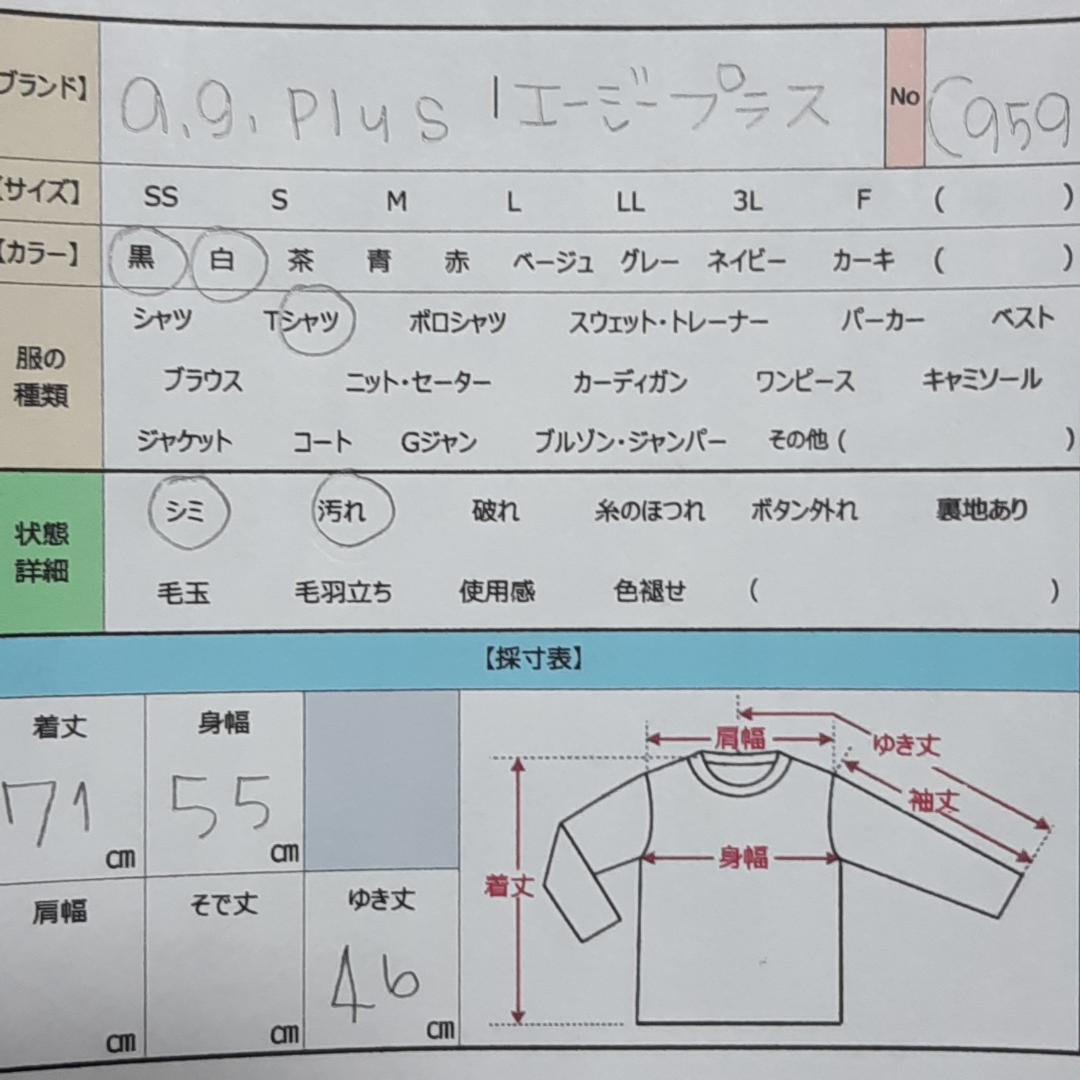 ブランド】 a.g. plus | エージープラス No (959
【サイズ】 SS S M L LL 3L F ( )
【カラー】 黒 白 茶 青 赤 ベージュ グレー ネイビー カーキ ( )
服の種類 シャツ Tシャツ ポロシャツ スウェット・トレーナー パーカー ベスト
ブラウス ニット・セーター カーディガン ワンピース キャミソール
ジャケット コート Gジャン ブルゾン・ジャンパー その他 ( )
状態詳細 シミ 汚れ 破れ 糸のほつれ ボタン外れ 裏地あり
毛玉 毛羽立ち 使用感 色褪せ ( )
【採寸表】
着丈 身幅
71 cm 55 cm
肩幅 そで丈 ゆき丈
cm cm 46 cm
肩幅 ゆき丈
袖丈
身幅
着丈